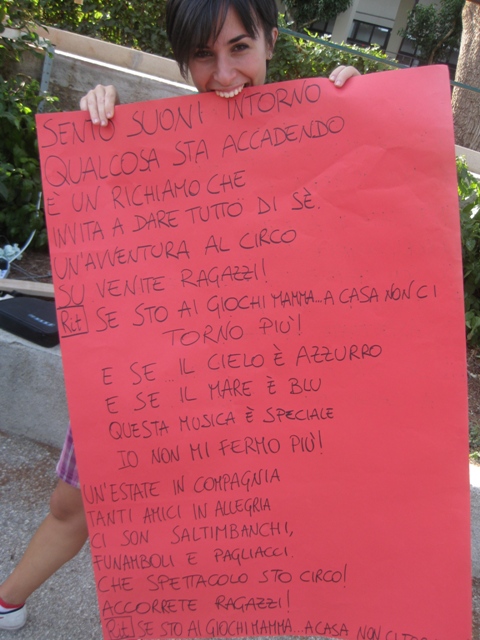 SENTO SUONI INTORNO
QUALCOSA STA ACCADENDO
È UN RICHIAMO CHE
INVITA A DARE TUTTO DI SÈ.
UN'AVVENTURA AL CIRCO
SU VENITE RAGAZZI!
Rit SE STO AI GIOCHI MAMMA...A CASA NON CI
TORNO PIÙ!
E SE IL CIELO È AZZURRO
E SE IL MARE È BLU
QUESTA MUSICA È SPECIALE
IO NON MI FERMO PIÙ!
UN'ESTATE IN COMPAGNIA
TANTI AMICI IN ALLEGRIA
CI SON SALTIMBANCHI,
FUNAMBOLI E PAGLIACCI.
CHE SPETTACOLO STO CIRCO!
ACCORRETE RAGAZZI!
Rit SE STO AI GIOCHI MAMMA...A CASA NON CI